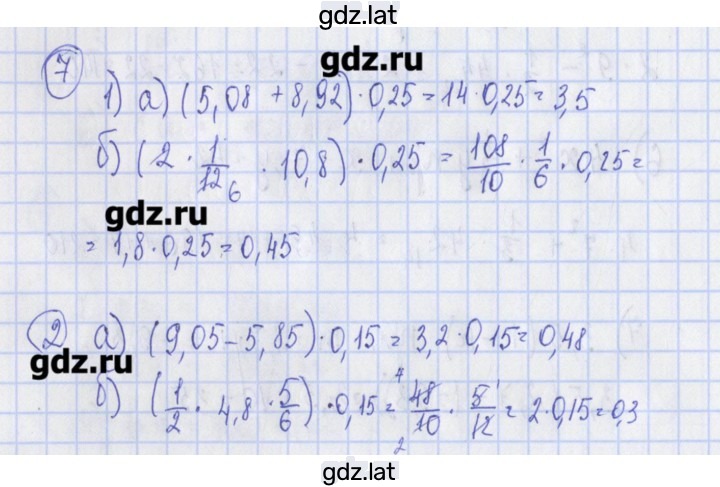 gdz.lat
gdz.lat
7
1) а) (5,08 + 8,92) · 0,25 = 14 · 0,25 = 3,5
б) (2 · 1/12 6 · 10,8) · 0,25 = 108/10 · 1/6 · 0,25 =
gdz.lat
= 1,8 · 0,25 = 0,45
2 а) (9,05 – 5,85) · 0,15 = 3,2 · 0,15 = 0,48
gdz.lat
б) (1/2 · 4,8 · 5/6) · 0,15 = 48/10 2 · 5/12 1 = 2 · 0,15 = 0,3
gdz.lat